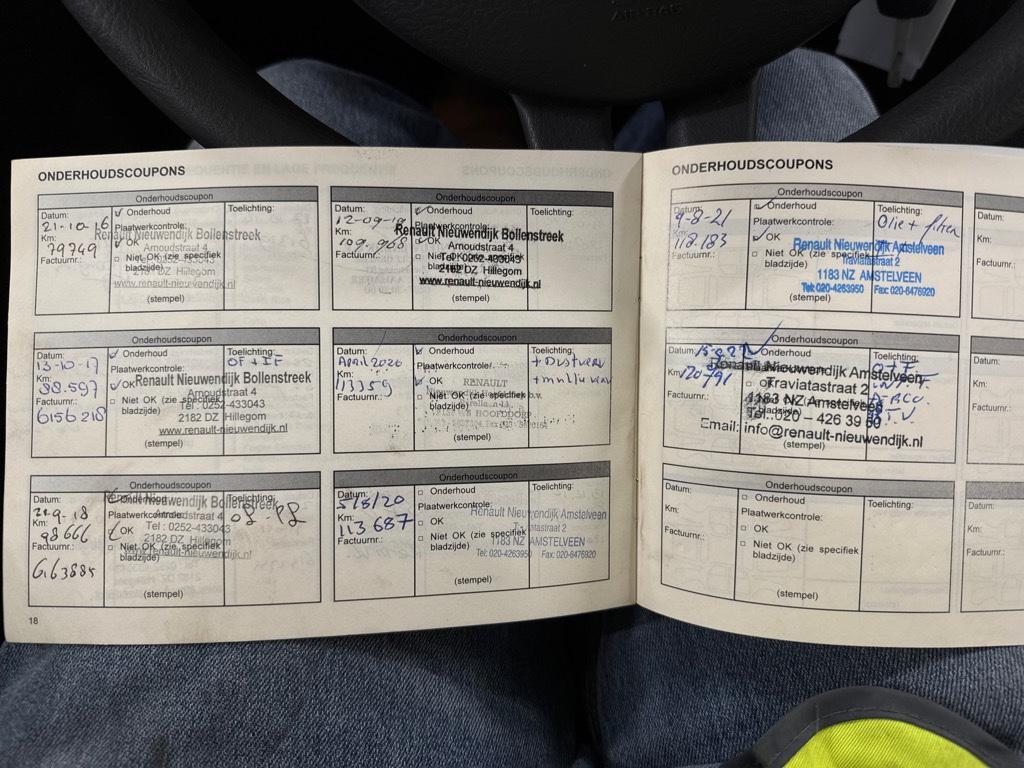 AIRBAG
ONDERHOUDSCOUPONS
Onderhoudscoupon
Datum:
21-10-16
Km:
79749
Factuurnr.:
Onderhoud
Plaatwerkcontrole:
OK
Niet OK (zie specifiek
bladzijde)
Toelichting:
Renault Nieuwendijk Bollenstreek
Arnoudstraat 4
Tel: 0252-433043
2182 DZ Hillegom
www.renault-nieuwendijk.nl
(stempel)
Onderhoudscoupon
Datum:
12-09-19
Km:
109.968
Factuurnr.:
Onderhoud
Plaatwerkcontrole:
OK
Niet OK (zie specifiek
bladzijde)
Toelichting:
Renault Nieuwendijk Bollenstreek
Arnoudstraat 4
Tel: 0252-433043
2182 DZ Hillegom
www.renault-nieuwendijk.nl
(stempel)
Onderhoudscoupon
Datum:
13-10-17
Km:
88.597
Factuurnr.:
6156218
Onderhoud
Plaatwerkcontrole:
OK
Niet OK (zie specifiek
bladzijde)
Toelichting:
OF + IF
Renault Nieuwendijk Bollenstreek
Arnoudstraat 4
Tel.: 0252-433043
2182 DZ Hillegom
www.renault-nieuwendijk.nl
(stempel)
Onderhoudscoupon
Datum:
April 2020
Km:
113359
Factuurnr.:
Onderhoud
Plaatwerkcontrole:
OK
Niet OK (zie specifiek
bladzijde)
Toelichting:
RENAULT
HOOFDDORP
(stempel)
Onderhoudscoupon
Datum:
Km:
98666
Factuurnr.:
Onderhoud
Plaatwerkcontrole:
OK
Niet OK (zie specifiek
bladzijde)
Toelichting:
Nieuwendijk Bollenstreek
Arnoudstraat 4
Tel : 0252-433043
2182 DZ Hillegom
www.renault-nieuwendijk.nl
(stempel)
Onderhoudscoupon
Datum:
5/8/20
Km:
113687
Factuurnr.:
Onderhoud
Plaatwerkcontrole:
OK
Niet OK (zie specifiek
bladzijde)
Toelichting:
Renault Nieuwendijk Amstelveen
Traviatastraat 2
1183 NZ AMSTELVEEN
Tel: 020-4263950 Fax: 020-6476920
(stempel)
18
ONDERHOUDSCOUPONS
Onderhoudscoupon
Datum:
9-8-21
Km:
118.183
Factuurnr.:
Onderhoud
Plaatwerkcontrole:
OK
Niet OK (zie specifiek
bladzijde)
Toelichting:
Olie + filter
Renault Nieuwendijk Amstelveen
Traviatastraat 2
1183 NZ AMSTELVEEN
Tel: 020-4263950 Fax: 020-6476920
(stempel)
Onderhoudscoupon
Datum:
Km:
120791
Factuurnr.:
Renault Nieuwendijk Amstelveen
Traviatastraat 2
1183 NZ Amstelveen
Tel.: 020 – 426 39 50
Email: info@renault-nieuwendijk.nl
Onderhoudscoupon
Datum:
Km:
Factuurnr.:
Onderhoud
Plaatwerkcontrole:
OK
Niet OK (zie specifiek
bladzijde)
Toelichting:
(stempel)
Datum:
Km:
Factuurnr.:
Datum:
Km:
Factuurnr.:
Datum:
Km:
Factuurnr.: